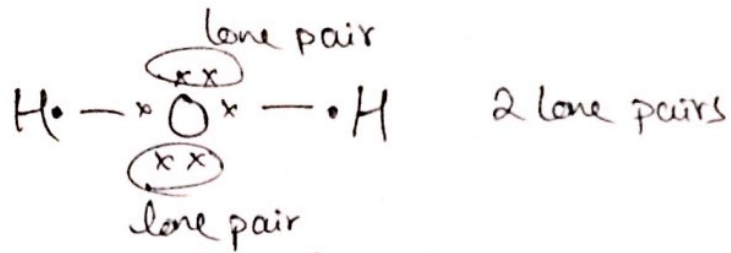 lone pair
xx
H• — xOx — •H 2 lone pairs
xx
lone pair